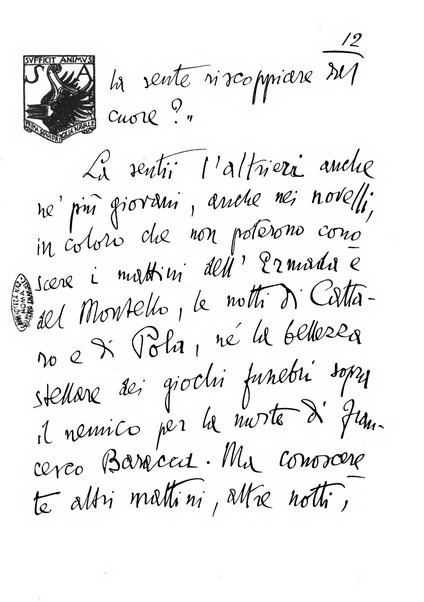 12
SUFFICIT ANIMUS
S A
la sente riscoppiare dal
cuore?"
La sentii l'altrieri anche
ne' più giovani, anche nei novelli,
in coloro che non poterono cono
scere i mattini dell'Ermada e
del Montello, le notti di Catta-
ro e di Pola, né la bellezza
stellare dei giochi funebri sopra
il nemico per la morte di Fran-
cesco Baracca. Ma conoscere
te altri mattini, altre notti,